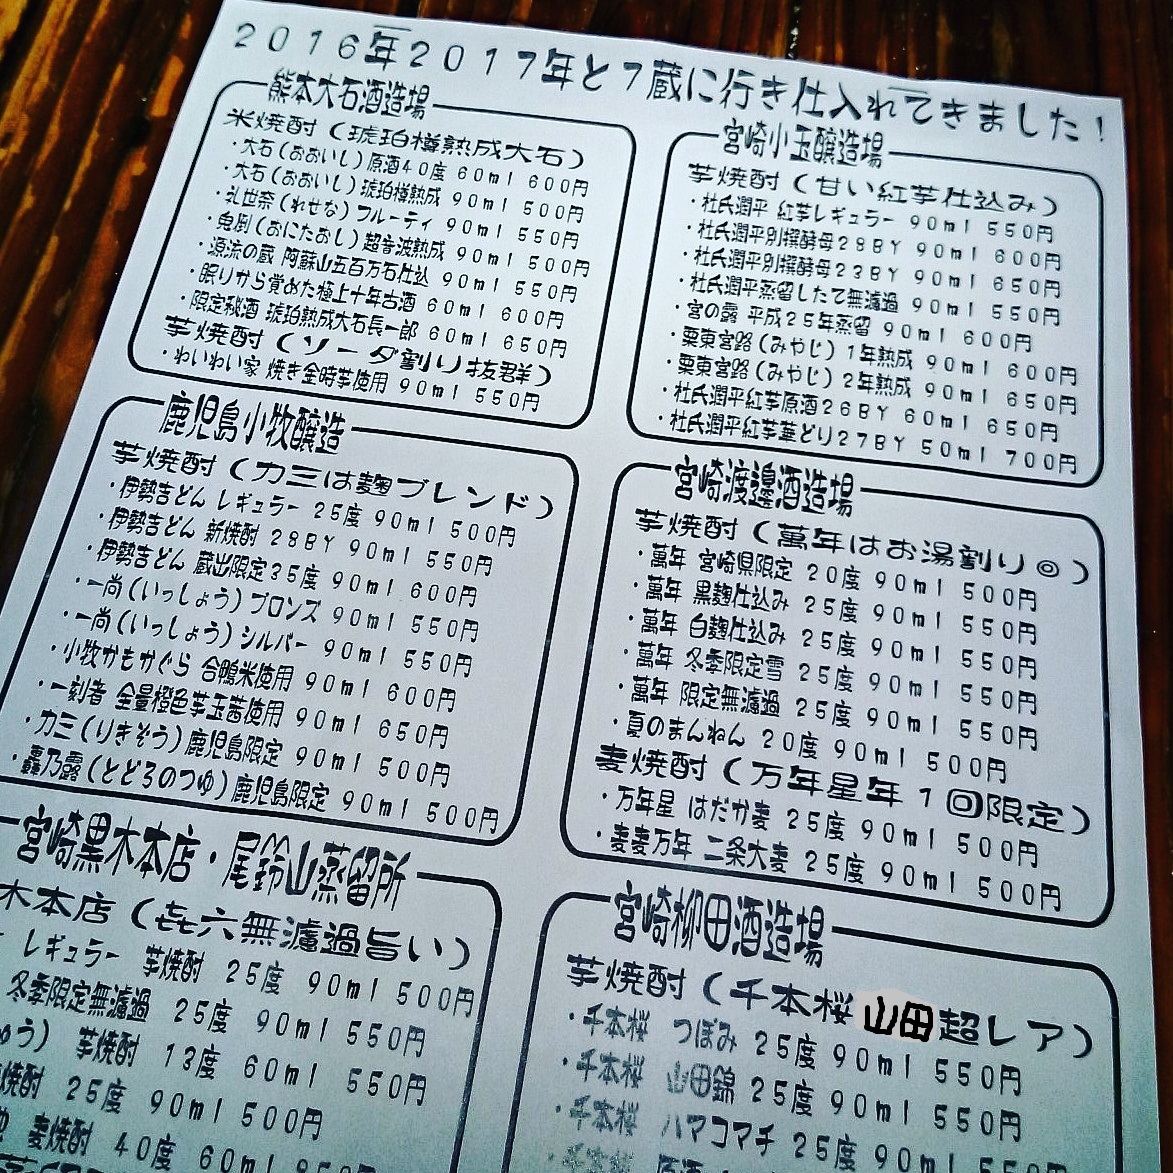 2016年2017年と7蔵に行き仕入れてきました!
熊本大石酒造場
米焼酎(琥珀樽熟成大石)
・大石(おおいし)原酒40度 60ml 600円
・大石(おおいし)琥珀樽熟成 90ml 500円
・礼世奈(れせな)フルーティ 90ml 550円
・鬼倒(おにたおし)超音波熟成 90ml 500円
・源流の蔵 阿蘇山五百万石仕込 90ml 550円
・眠りから覚めた極上十年古酒 60ml 600円
・限定秘酒 琥珀熟成大石長一郎 60ml 650円
芋焼酎(ソーダ割り抜群)
・わいわい家 焼き金時芋使用 90ml 550円
鹿児島小牧醸造
芋焼酎(力三は麹ブレンド)
・伊勢吉どん レギュラー 25度 90ml 500円
・伊勢吉どん 新焼酎 28BY 90ml 550円
・伊勢吉どん 蔵出限定35度 90ml 600円
・一尚(いっしょう)ブロンズ 90ml 550円
・一尚(いっしょう)シルバー 90ml 550円
・小牧かもかぐら 合鴨米使用 90ml 600円
・一刻者 全量橙色芋玉茜使用 90ml 650円
・力三(りきぞう)鹿児島限定 90ml 500円
・轟乃露(とどろのつゆ)鹿児島限定 90ml 500円
宮崎黒木本店・尾鈴山蒸留所
木本店(㐂六無濾過旨い)
レギュラー 芋焼酎 25度 90ml 500円
冬季限定無濾過 25度 90ml 550円
ゅう) 芋焼酎 13度 60ml 550円
焼酎 25度 90ml 500円
麦焼酎 40度 60ml
宮崎小玉醸造場
芋焼酎(甘い紅芋仕込み)
・杜氏潤平 紅芋レギュラー 90ml 550円
・杜氏潤平別撰酵母28BY 90ml 600円
・杜氏潤平別撰酵母23BY 90ml 650円
・杜氏潤平蒸留したて無濾過 90ml 550円
・宮の露 平成25年蒸留 90ml 600円
・粟東宮路(みやじ)1年熟成 90ml 600円
・粟東宮路(みやじ)2年熟成 90ml 650円
・杜氏潤平紅芋原酒26BY 60ml 650円
・杜氏潤平紅芋華どり27BY 50ml 700円
宮崎渡邊酒造場
芋焼酎(萬年はお湯割り◎)
・萬年 宮崎県限定 20度 90ml 500円
・萬年 黒麹仕込み 25度 90ml 550円
・萬年 白麹仕込み 25度 90ml 550円
・萬年 冬季限定雪 25度 90ml 550円
・萬年 限定無濾過 25度 90ml 550円
・夏のまんねん 20度 90ml 500円
麦焼酎(万年星年1回限定)
・万年星 はだか麦 25度 90ml 500円
・麦麦万年 二条大麦 25度 90ml 500円
宮崎柳田酒造場
芋焼酎(千本桜山田超レア)
・千本桜 つぼみ 25度 90ml 550円
・千本桜 山田錦 25度 90ml 550円
・千本桜 ハマコマチ 25度 90ml
千本桜 原酒